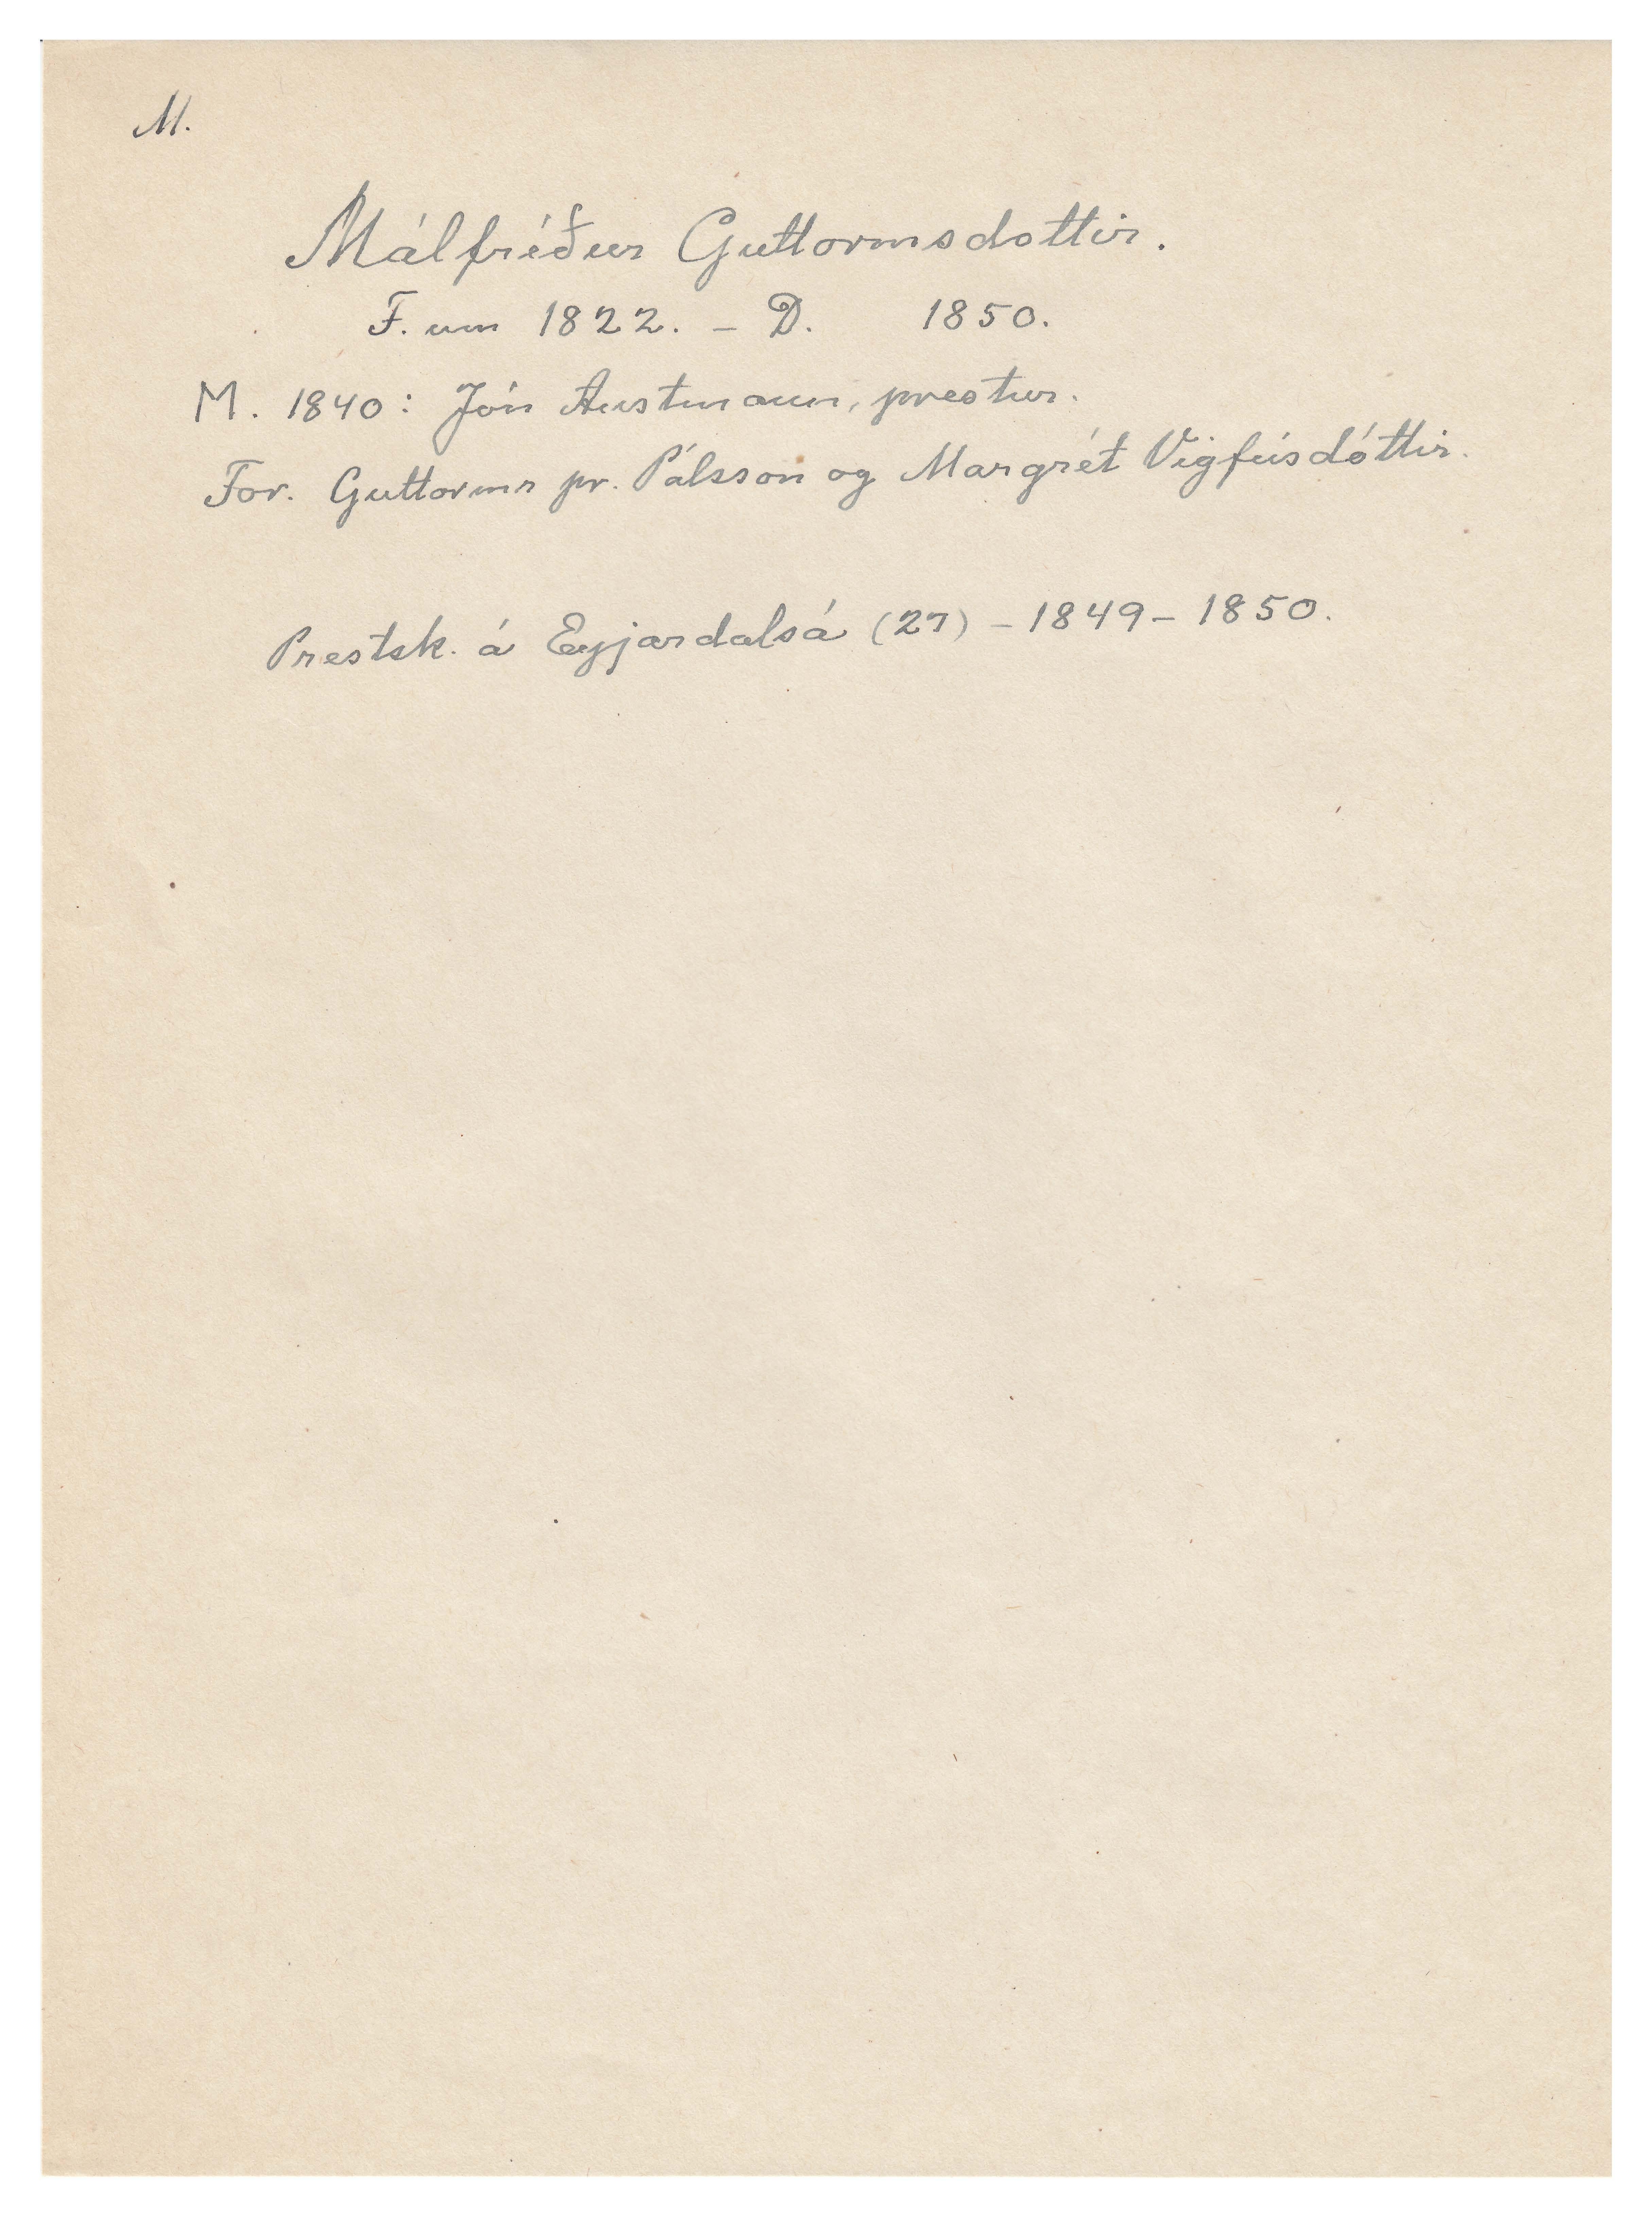 M.
Málfríður Guttormsdottir.
F. um 1822. – D. 1850.
M. 1840: Jón Austmann, prestur.
For. Guttormr pr. Pálsson og Margrét Vigfúsdóttir.
Prestsk. á Eyjardalsá (27) – 1849 – 1850.